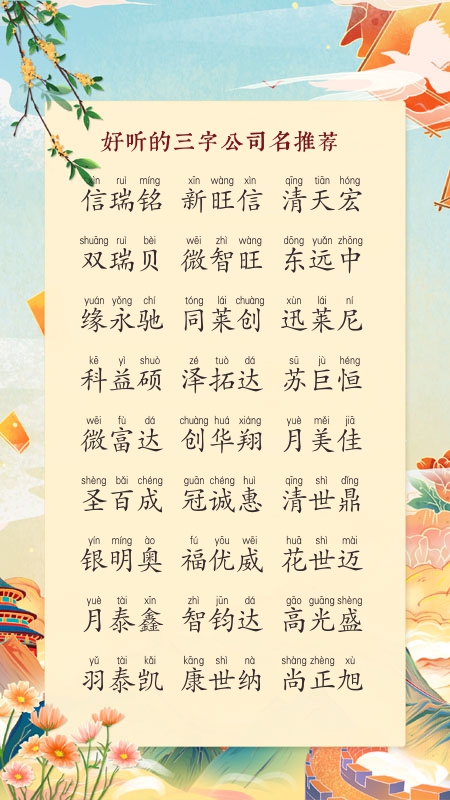 好听的三字公司名推荐
xìn ruì míng xīn wàng xìn qīng tiān hóng
信瑞铭 新旺信 清天宏
shuāng ruì bèi wēi zhì wàng dōng yuǎn zhōng
双瑞贝 微智旺 东远中
yuán yǒng chí tóng lái chuàng xùn lái ní
缘永驰 同莱创 迅莱尼
kē yì shuò zé tuò dá sū jù héng
科益硕 泽拓达 苏巨恒
wēi fù dá chuàng huá xiáng yuè měi jiā
微富达 创华翔 月美佳
shèng bǎi chéng guān chéng huì qīng shì dǐng
圣百成 冠诚惠 清世鼎
yín míng ào fú yōu wēi huā shì mài
银明奥 福优威 花世迈
yuè tài xīn zhì jūn dá gāo guāng shèng
月泰鑫 智钧达 高光盛
yǔ tài kǎi kāng shì nà shàng zhèng xù
羽泰凯 康世纳 尚正旭